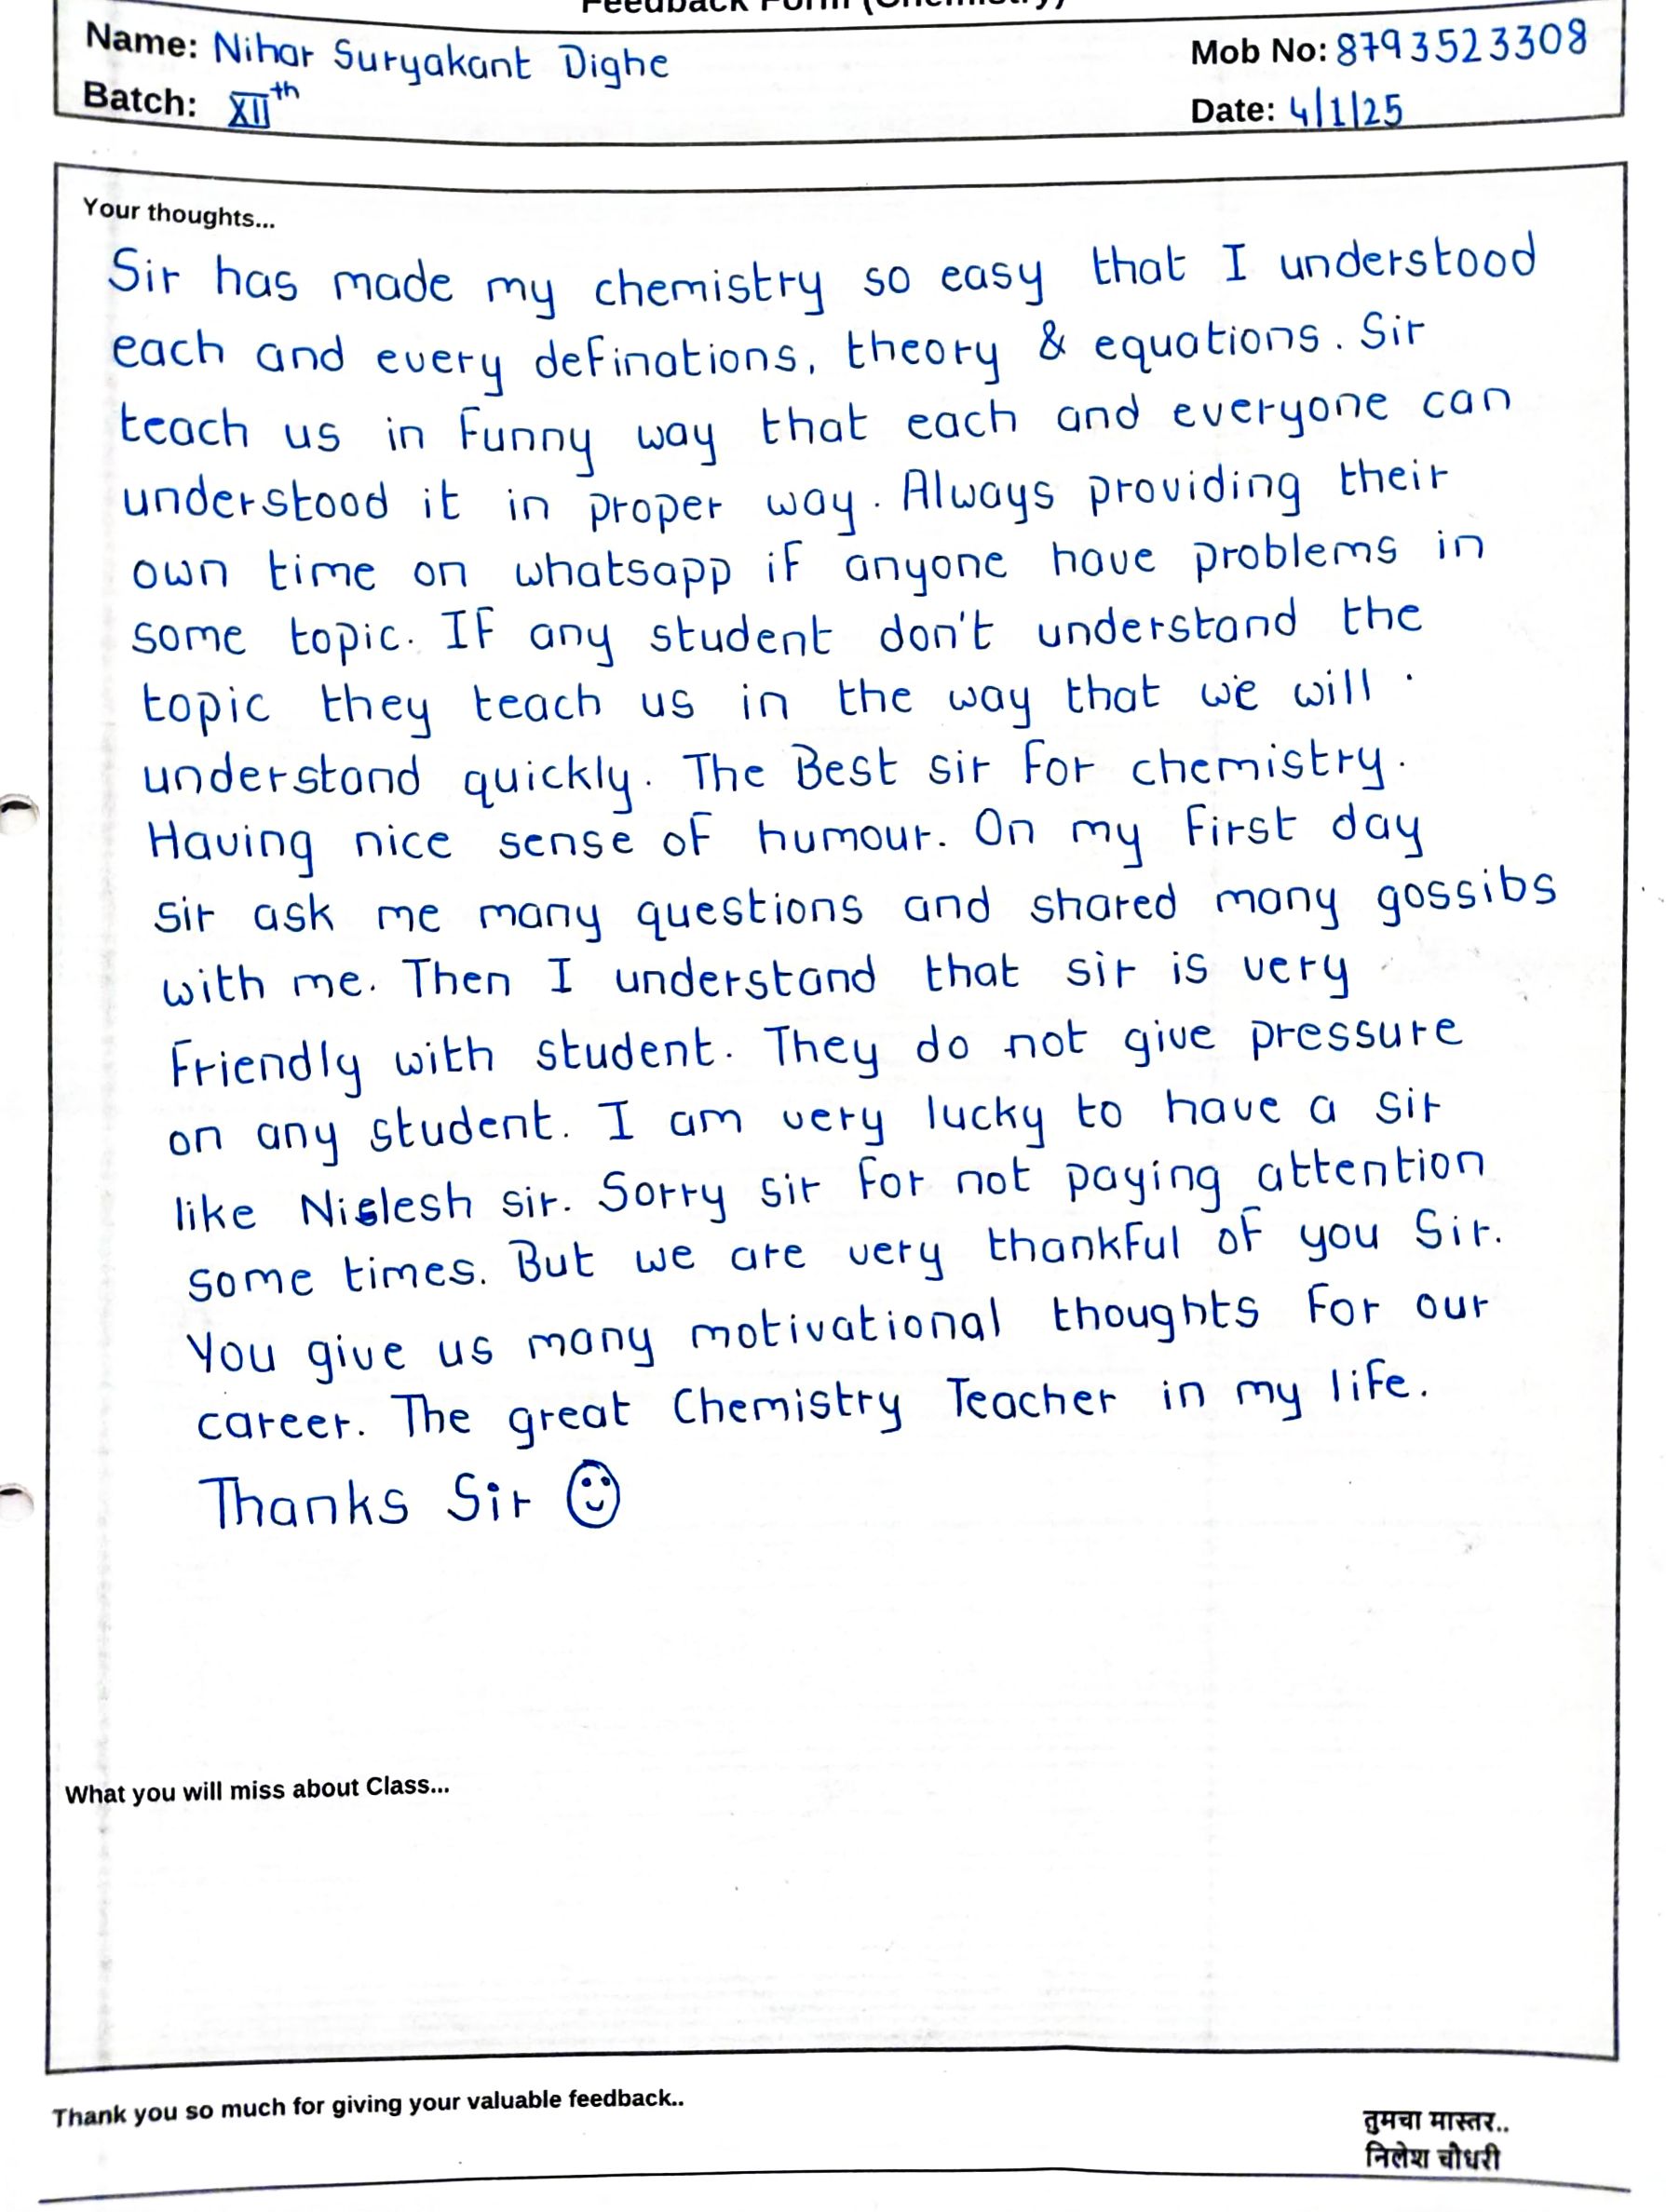 Feedback Form (Chemistry)
Name: Nihar Suryakant Dighe
Mob No: 8793523308
Batch: XIIth
Date: 4/1/25
Your thoughts...
Sir has made my chemistry so easy that I understood
each and every definations, theory & equations. Sir
teach us in funny way that each and everyone can
understood it in proper way. Always providing their
own time on whatsapp if anyone have problems in
some topic. If any student don't understand the
topic they teach us in the way that we will
understand quickly. The Best sir for chemistry.
Having nice sense of humour. On my first day
sir ask me many questions and shared many gossibs
with me. Then I understand that sir is very
friendly with student. They do not give pressure
on any student. I am very lucky to have a sir
like Nislesh sir. Sorry sir for not paying attention
some times. But we are very thankful of you Sir.
You give us many motivational thoughts for our
career. The great Chemistry Teacher in my life.
Thanks Sir
What you will miss about Class...
Thank you so much for giving your valuable feedback..
तुमचा मास्तर..
निलेश चौधरी